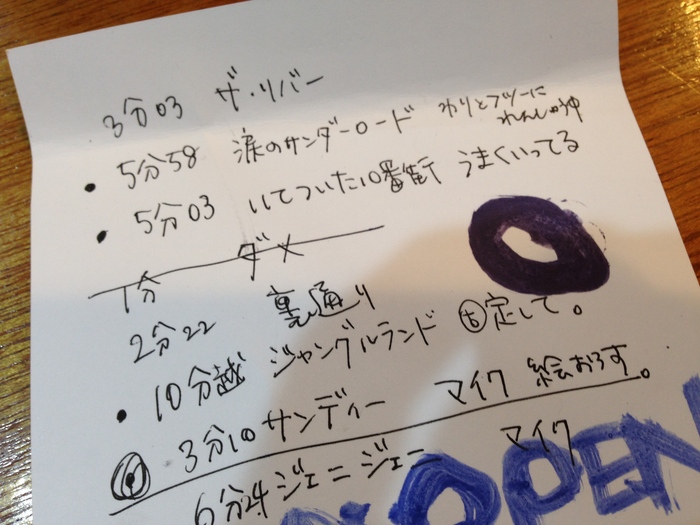 3分03 ザ・リバー
・5分58 涙のサンダーロード わりとフツーにれんしゅう中
・5分03 いてついた10番街 うまくいってる
1分 ダメ
2分22 裏通り
・10分越 ジャングルランド 固定して。
3分10 サンディー マイク 絵おろす。
6分24 ジェニジェニー マイク
OPEN